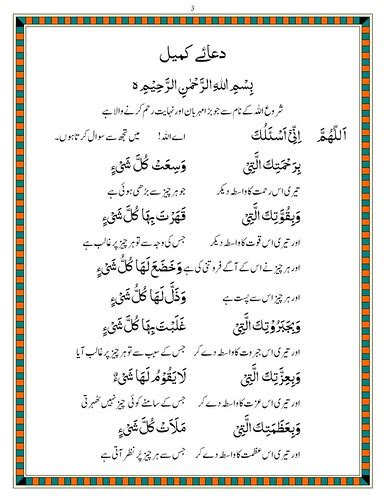 3
دعائے کمیل
بِسْمِ اللهِ الرَّحْمٰنِ الرَّحِيْمِ ٥
شروع اللہ کے نام سے جو بڑا مہربان اور نہایت رحم کرنے والا ہے
اَللّٰهُمَّ اِنِّیْ اَسْئَلُكَ اے اللہ! میں تجھ سے سوال کرتا ہوں۔
بِرَحْمَتِكَ الَّتِیْ وَسِعَتْ كُلَّ شَیْءٍ
تیری اس رحمت کا واسطہ دیکر جو ہر چیز سے بڑھی ہوئی ہے
وَبِقُوَّتِكَ الَّتِیْ قَهَرْتَ بِهَا كُلَّ شَیْءٍ
اور تیری اس قوت کا واسطہ دیکر جس کی وجہ سے تو ہر چیز پر غالب ہے
اور ہر چیز نے اس کے آگے فروتنی کی ہے وَخَضَعَ لَهَا كُلُّ شَیْءٍ
اور ہر چیز اس سے پست ہے وَذَلَّ لَهَا كُلُّ شَیْءٍ
وَبِجَبَرُوْتِكَ الَّتِیْ غَلَبْتَ بِهَا كُلَّ شَیْءٍ
اور تیری اس جبروت کا واسطہ دے کر جس کے سبب سے تو ہر چیز پر غالب آیا
وَبِعِزَّتِكَ الَّتِیْ لَا یَقُوْمُ لَهَا شَیْءٌ
اور تیری اس عزت کا واسطہ دے کر جس کے سامنے کوئی چیز نہیں ٹھہرتی
وَبِعَظَمَتِكَ الَّتِیْ مَلَاَتْ كُلَّ شَیْءٍ
اور تیری اس عظمت کا واسطہ دے کر جس سے ہر چیز پُر نظر آتی ہے